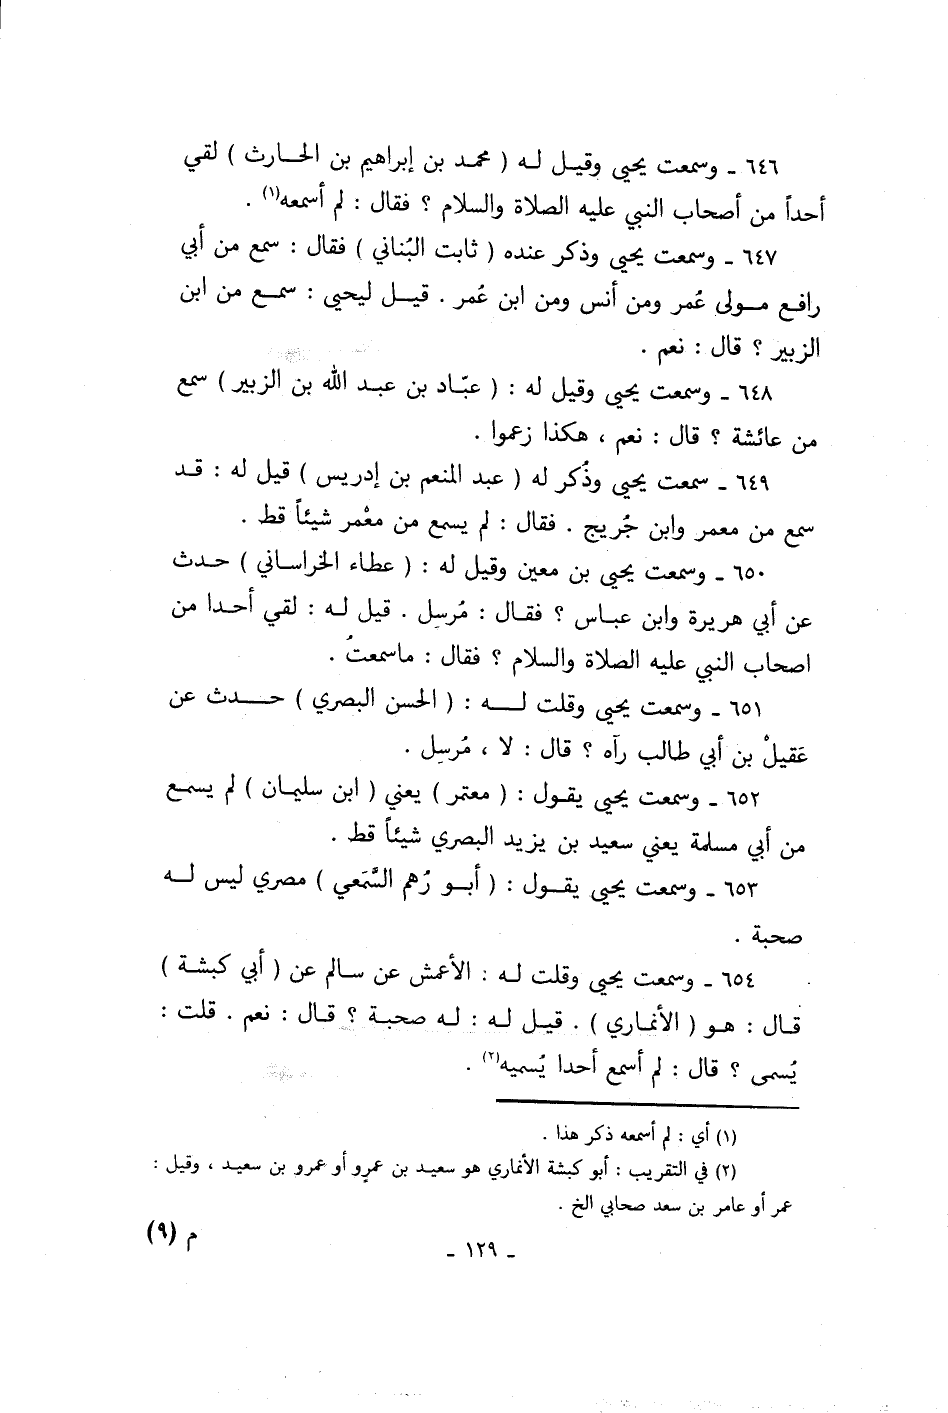 ٦٤٦ ـ وسمعت يحيى وقيل له ( محمد بن إبراهيم بن الحارث ) لقي
أحداً من أصحاب النبي عليه الصلاة والسلام ؟ فقال : لم أسمعه(١) .
٦٤٧ ـ وسمعت يحيى وذكر عنده ( ثابت البُناني ) فقال : سمع من أبي
رافع مولى عُمر ومن أنس ومن ابن عُمر . قيل ليحيى : سمع من ابن
الزبير ؟ قال : نعم .
٦٤٨ ـ وسمعت يحيى وقيل له : ( عبّاد بن عبد الله بن الزبير ) سمع
من عائشة ؟ قال : نعم ، هكذا زعموا .
٦٤٩ ـ سمعت يحيى وذُكر له ( عبد المنعم بن إدريس ) قيل له : قد
سمع من معمر وابن جُريج . فقال : لم يسمع من معْمر شيئاً قط .
٦٥٠ ـ وسمعت يحيى بن معين وقيل له : ( عطاء الخراساني ) حدث
عن أبي هريرة وابن عباس ؟ فقال : مُرسل . قيل له : لقي أحدا من
اصحاب النبي عليه الصلاة والسلام ؟ فقال : ماسمعتُ .
٦٥١ ـ وسمعت يحيى وقلت له : ( الحسن البصري ) حدث عن
عَقيلْ بن أبي طالب رآه ؟ قال : لا ، مُرسل .
٦٥٢ ـ وسمعت يحيى يقول : ( معتمر ) يعني ( ابن سليمان ) لم يسمع
من أبي مسلمة يعني سعيد بن يزيد البصري شيئاً قط .
٦٥٣ ـ وسمعت يحيى يقول : ( أبو رُهم السَّمَعي ) مصري ليس له
صحبة .
٦٥٤ ـ وسمعت يحيى وقلت له : الأعمش عن سالم عن ( أبي كبشة )
قال : هو ( الأنماري ) . قيل له : له صحبة ؟ قال : نعم . قلت :
يُسمى ؟ قال : لم أسمع أحدا يُسميه(٢) .
(١) أي : لم أسمعه ذكر هذا .
(٢) في التقريب : أبو كبشة الأنماري هو سعيد بن عمرو أو عمرو بن سعيد ، وقيل :
عمر أو عامر بن سعد صحابي الخ .
ـ ١٢٩ ـ
م (٩)